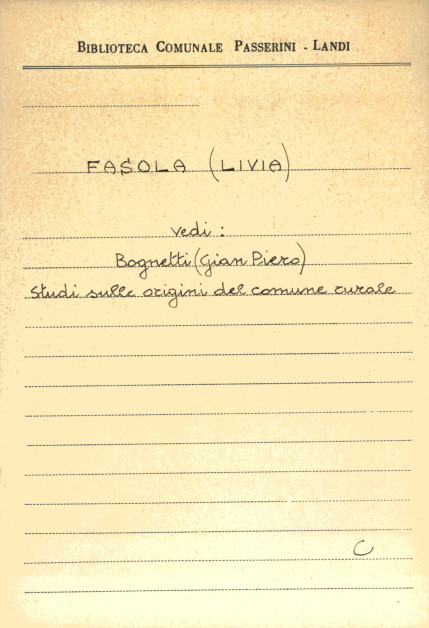 BIBLIOTECA COMUNALE PASSERINI - LANDI
FASOLA (LIVIA)
vedi :
Bognetti (Gian Piero)
Studi sulle origini del comune rurale
C